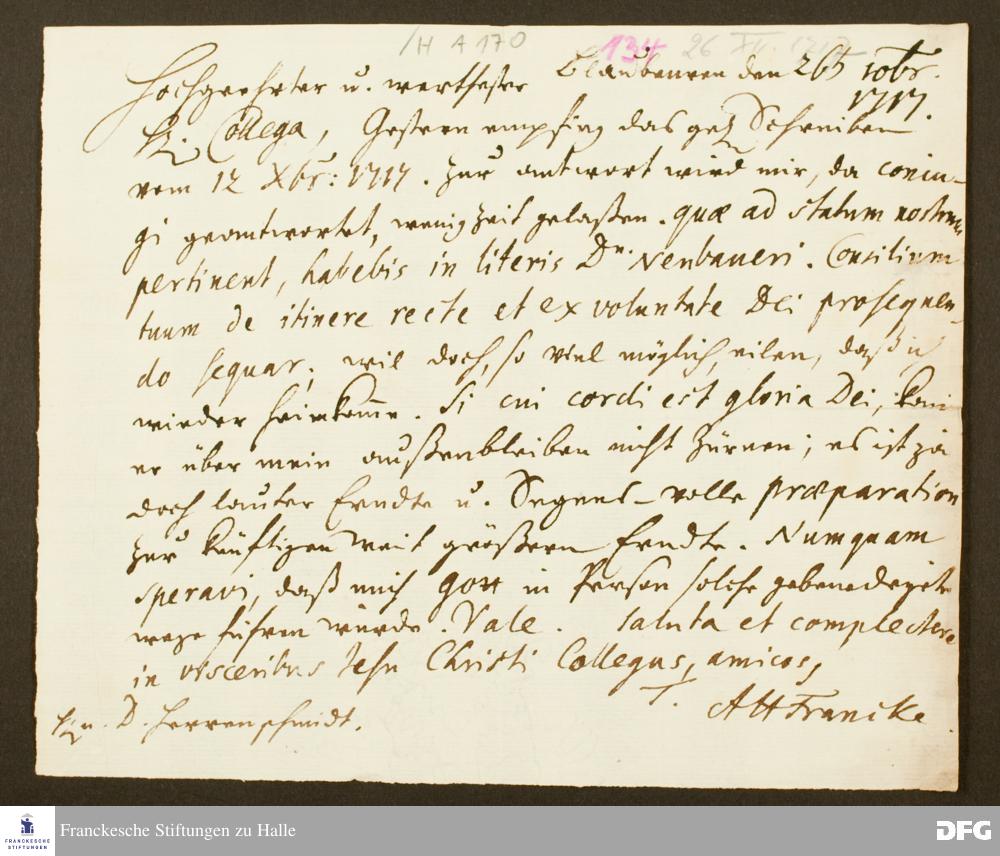 /H A 170 134 26 XII. 1717
Hochgeehrter u. werthester Blaubeuren den 26t Xbr.
1717.
H. Collega, Gestern empfing das gel. Schreiben
vom 12 Xbr: 1717. Zur antwort wird mir, da coniu-
gi geantwortet, wenig zeit gelaßen. quæ ad statum nostrum
pertinent, habebis in literis Dn. Neubaueri. Consilium
tuum de itinere recte et ex voluntate Dei prosequen-
do sequar; wil doch, so viel möglich, eilen, daß ich
wieder heimkomme. Si cui cordi est gloria Dei, kan
er über mein außenbleiben nicht zürnen; es ist ja
doch lauter Erndte u. Segens-volle præparation
zur künftigen weit größern Erndte. Numquam
speravi, daß mich Gott in Person solche gebenedeyete
wege führen würde. Vale. saluta et complectere
in visceribus Jesu Christi Collegas, amicos,
T. AHFrancke.
H. D. Herrenschmidt.
FRANCKESCHE
STIFTUNGEN
Franckesche Stiftungen zu Halle
DFG